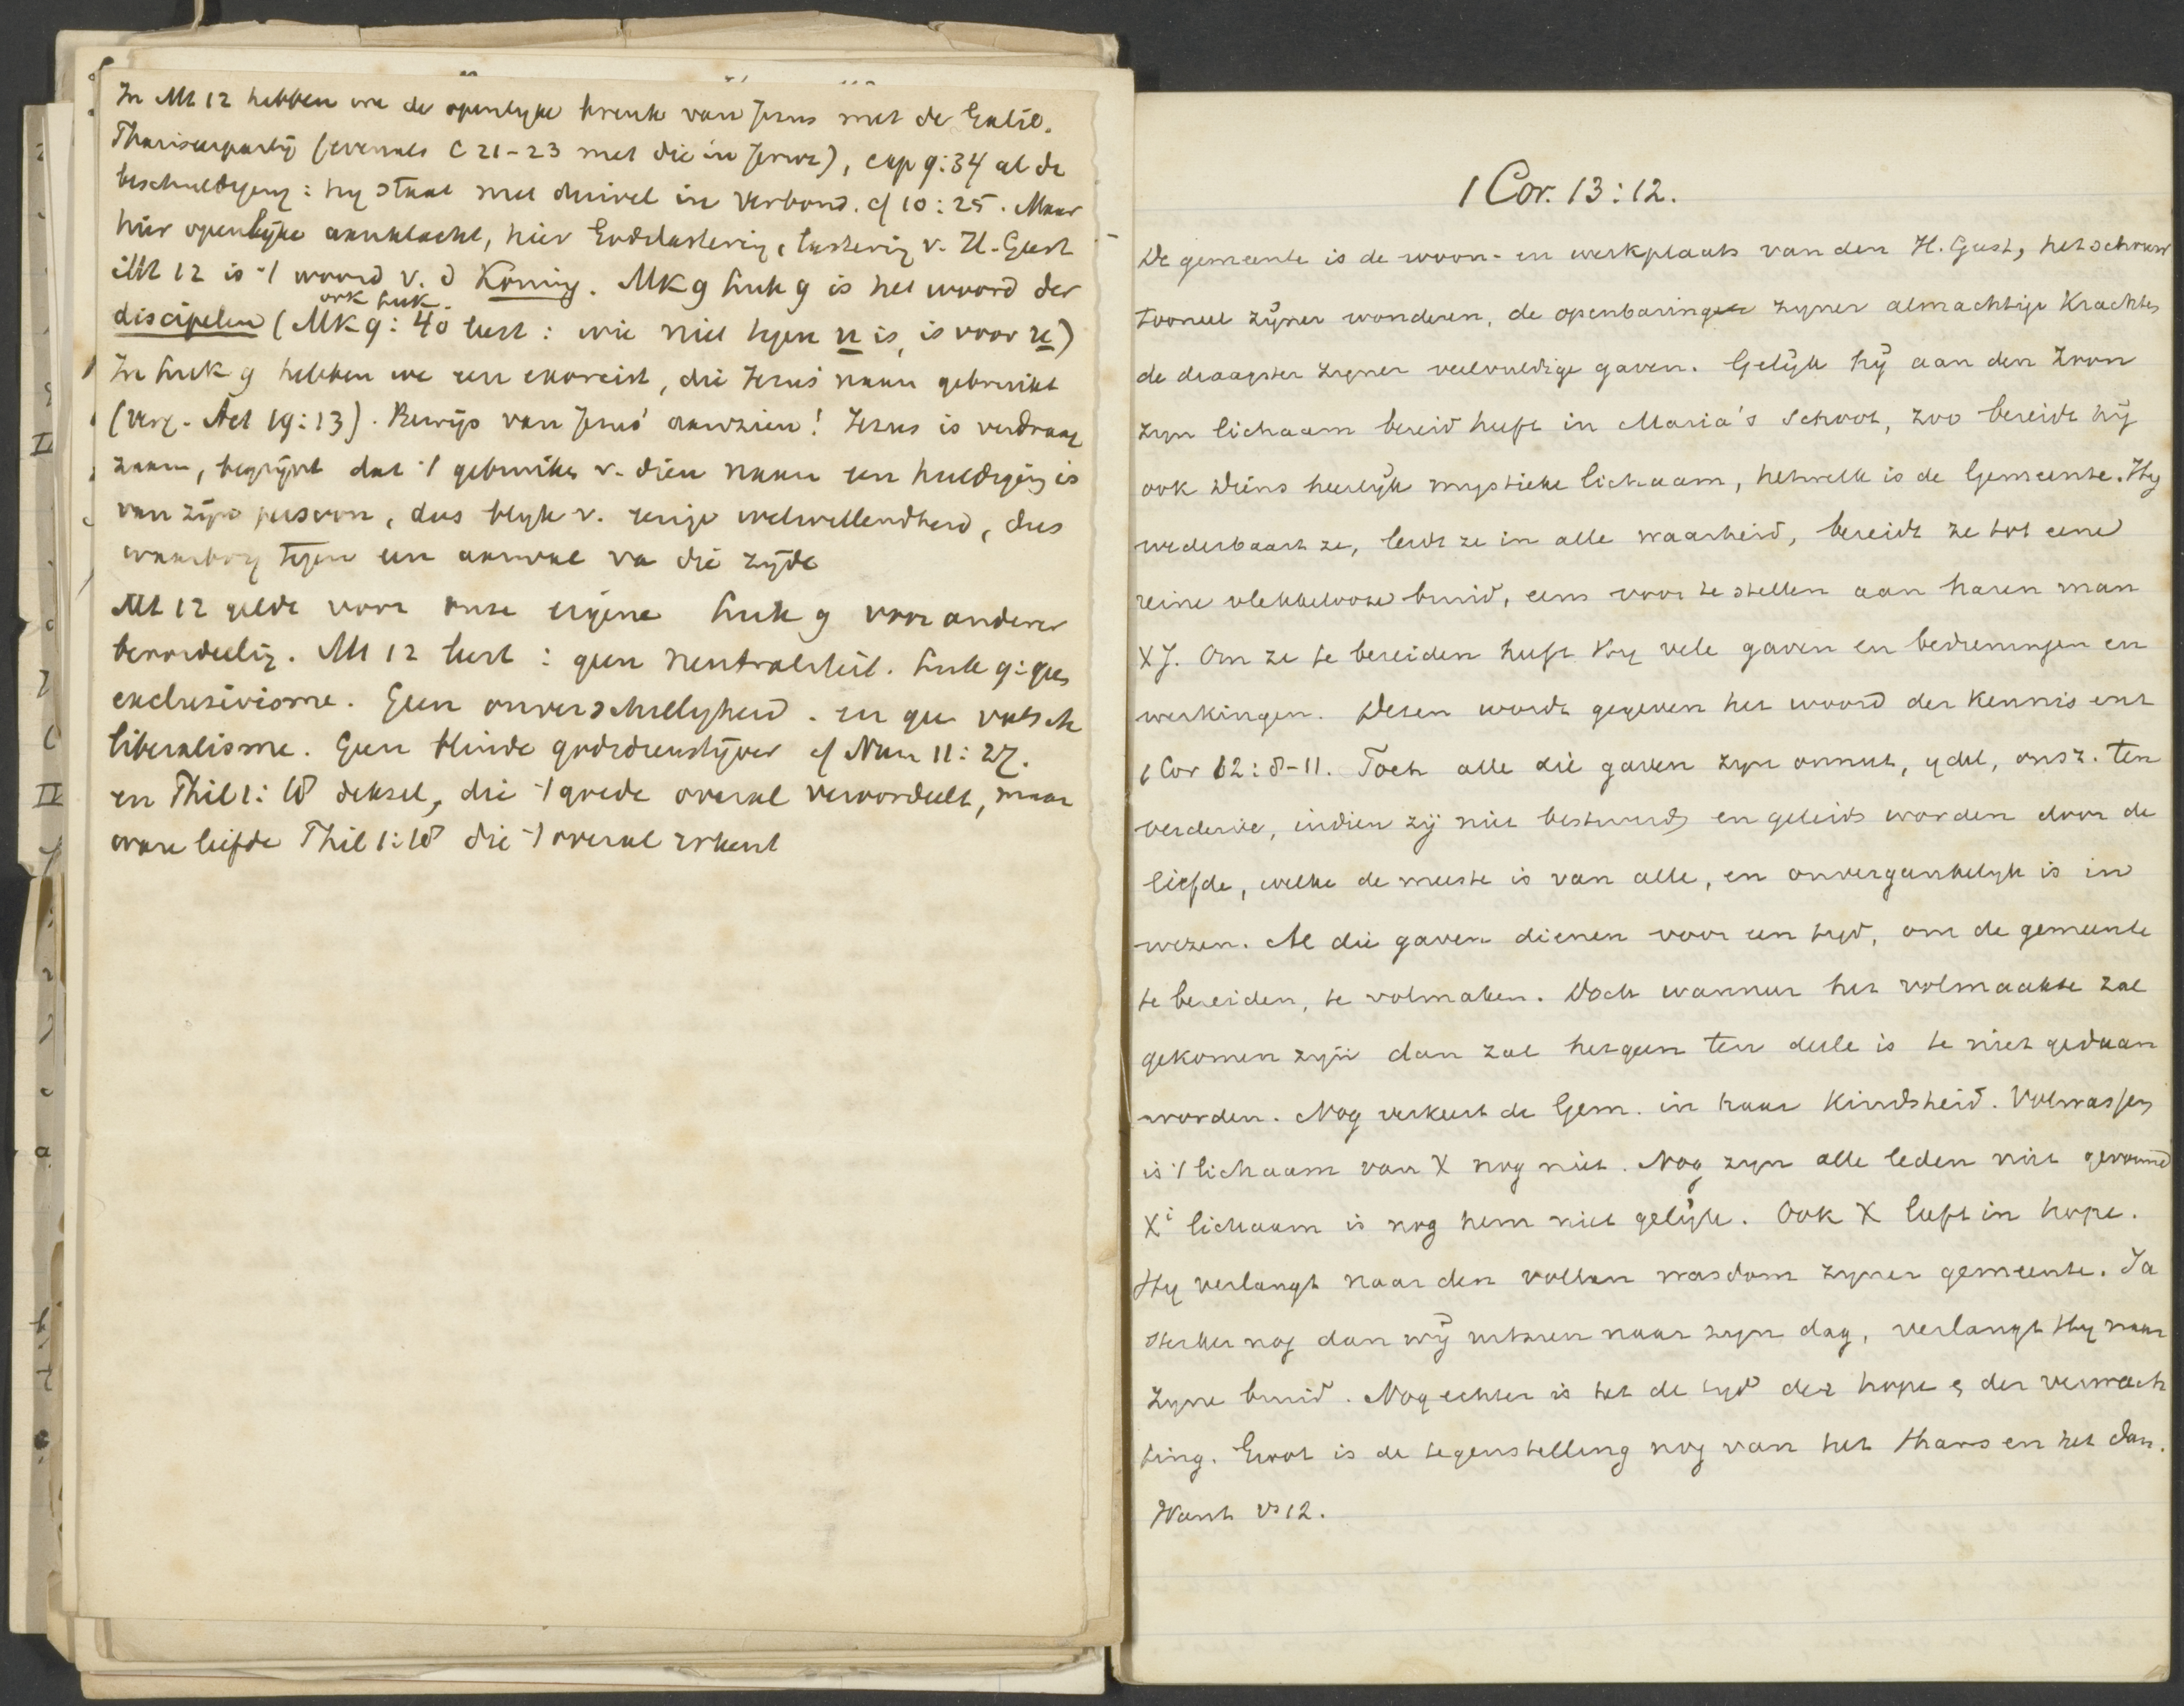 In Mt 12 hebben we de openlyke breuk van Jezus met de Galil.
Pharizeerpartij (evenals C 21-23 met die in Jeruz), cap 9:34 al de
beschuldiging: hy staat met duivel in verbond. cf 10:25. Maar
hier openlijke aanklacht, hier Godslastering, lastering v. H. Geest
Mt 12 is 't woord v. d Koning. Mk 9 Luk 9 is het woord der
ook Luk.
discipelen (Mk 9:40 leest: wie niet tegen u is, is voor u)
In Luk 9 hebben we een exorcist, die Jezus' naam gebruikt
(verg. Act 19:13). Bewijs van Jezus' aanzien! Jezus is verdraag
zaam, begrijpt dat 't gebruiken v. dien naam een huldiging is
van zijn persoon, dus blijk v. eenige welwillendheid, dus
waarborg tegen een aanval van die zijde
Mt 12 geldt voor onze eigene Luk 9 voor anderer
beoordeelig. Mt 12 leert: geen neutraliteit. Luk 9: geen
exclusivisme. Geen onverschillyheid. en geen valsch
liberalisme. Geen blinde godsdienstijver cf Num 11:27.
en Phil 1:18 deksel, die 't goede overal veroordeelt, maar
ware liefde Phil 1:18 die 't overal erkent
1 Cor. 13:12.
De gemeente is de woon- en werkplaats van den H. Geest, het schouw
tooneel zijner wonderen, de openbaringen zyner almachtige Krachten
de draagster zyner veelvuldige gaven. Gelijk hij aan den Zoon
zyn lichaam bereid heeft in Maria's schoot, zoo bereidt hij
ook diens heerlijk mystieke lichaam, hetwelk is de Gemeente. Hy
wederbaart ze, leidt ze in alle waarheid, bereidt ze tot eene
reine vlekkelooze bruid, eens voor te stellen aan haren man
XJ. Om ze te bereiden heeft Hy vele gaven en bedieningen en
werkingen. Dezen wordt gegeven het woord der Kennis enz
1 Cor 12:8-11. Toch alle die gaven zyn onnut, ydel, onsz. ten
verderve, indien zij niet bestuurd en geleid worden door de
liefde, welke de meeste is van alle, en onvergankelyk is in
wezen. Al die gaven dienen voor een tyd, om de gemeente
te bereiden, te volmaken. Doch wanneer het volmaakte zal
gekomen zyn dan zal hetgeen ten deele is te niet gedaan
worden. Nog verkeert de Gem. in haar Kindsheid. Volwassen
is 't lichaam van X nog niet. Nog zyn alle leden niet gevormd
Xi lichaam is nog hem niet gelijk. Ook X leeft in hope.
Hy verlangt naar den vollen wasdom zyner gemeente. Ja
sterker nog dan wij uitzien naar zyn dag, verlangt Hy naar
zyne bruid. Nog echter is het de tyd der hope & der verwach
ting. Groot is de tegenstelling nog van het thans en het dan.
Want vs 12.